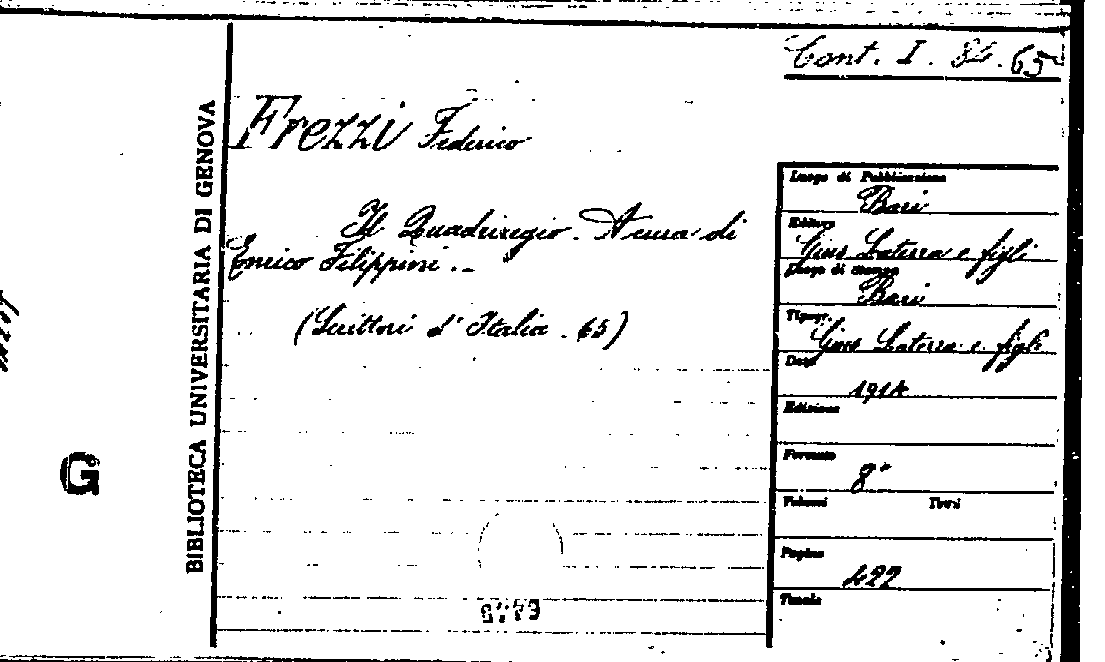 Cont. I. 84.65
Frezzi Federico
Il Quadriregio. A cura di
Enrico Filippini.
(Scrittori d'Italia. 65)
BIBLIOTECA UNIVERSITARIA DI GENOVA
G
Luogo di Pubblicazione
Bari
Editore
Gius Laterza e figli
Luogo di stampa
Bari
Tipogr.
Gius Laterza e figli
Data
1914
Edizione
Formato
8°
Volumi Tomi
Pagine
422
Tavole